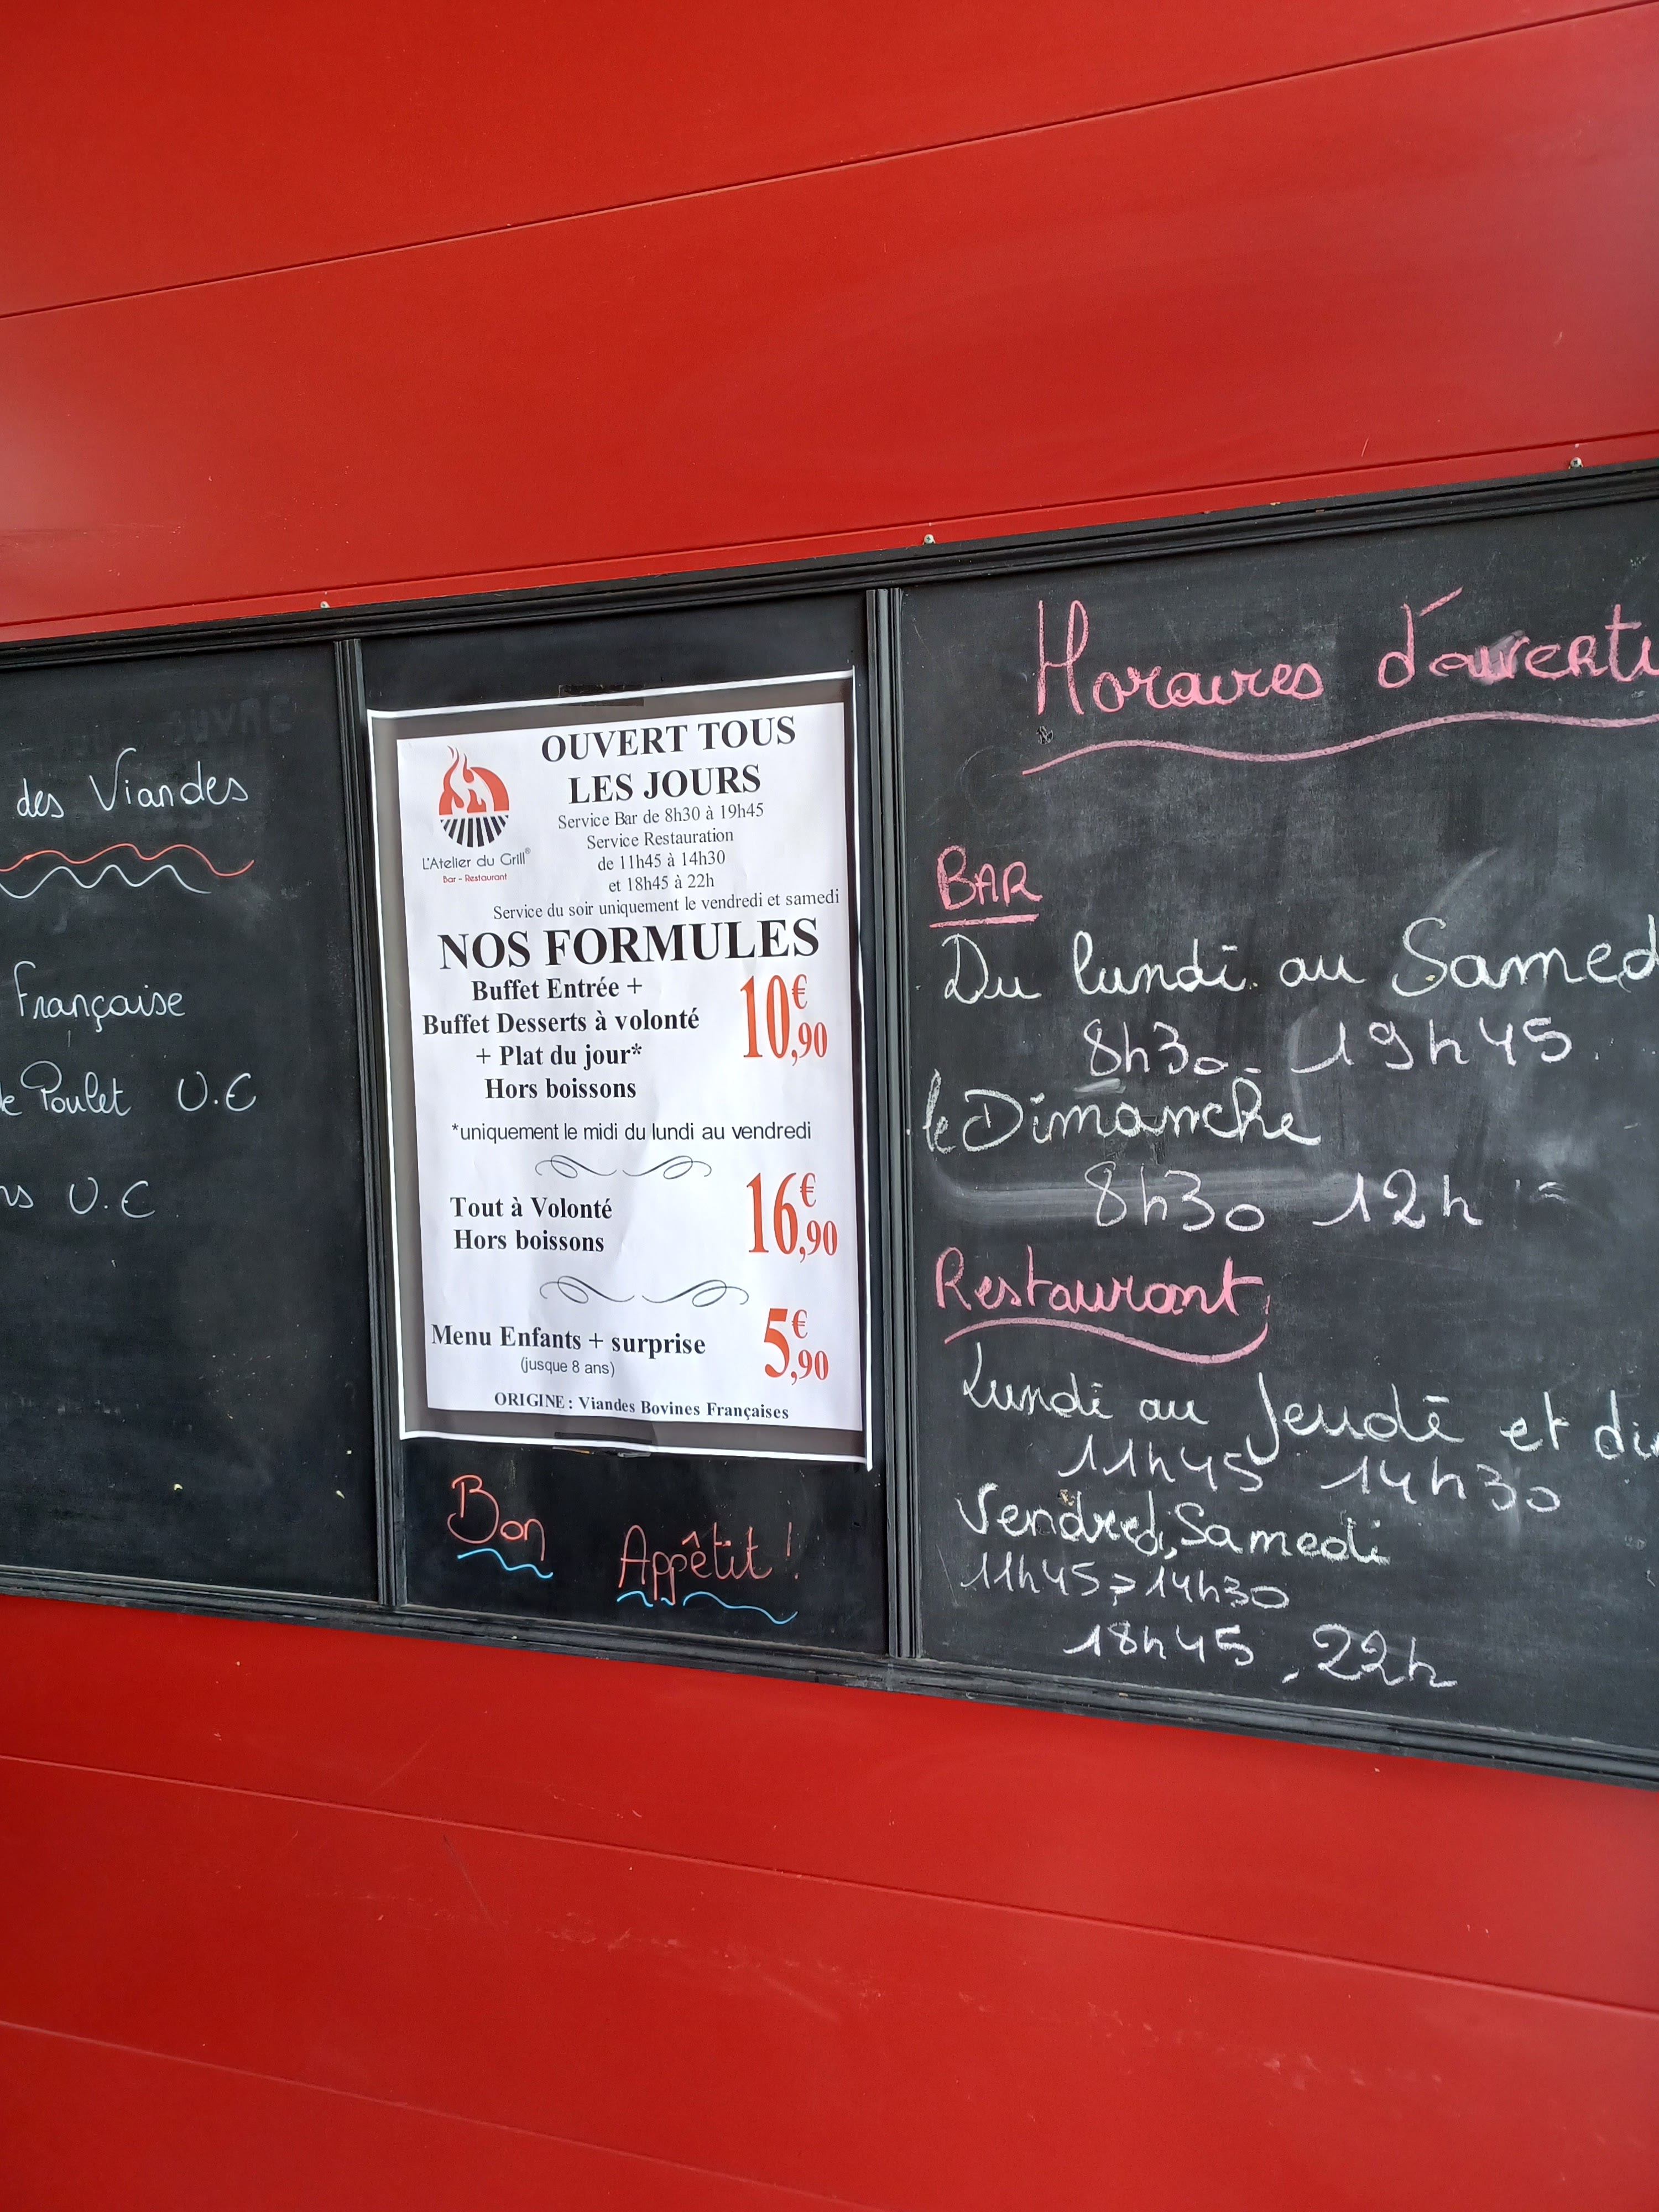 des Viandes
Française
Poulet U.E
U.E
L'Atelier du Grill®
Bar - Restaurant
OUVERT TOUS
LES JOURS
Service Bar de 8h30 à 19h45
Service Restauration
de 11h45 à 14h30
et 18h45 à 22h
Service du soir uniquement le vendredi et samedi
NOS FORMULES
Buffet Entrée +
Buffet Desserts à volonté
+ Plat du jour*
Hors boissons
10€,90
*uniquement le midi du lundi au vendredi
Tout à Volonté
Hors boissons
16€,90
Menu Enfants + surprise
(jusque 8 ans)
5€,90
ORIGINE : Viandes Bovines Françaises
Bon Appêtit !
Horaires d'ouvertu
BAR
Du lundi au Samed
8h30 - 19h45
le Dimanche
8h30 12h
Restaurant
Lundi au Jeudi et di
11h45 14h30
Vendredi, Samedi
11h45 > 14h30
18h45 22h